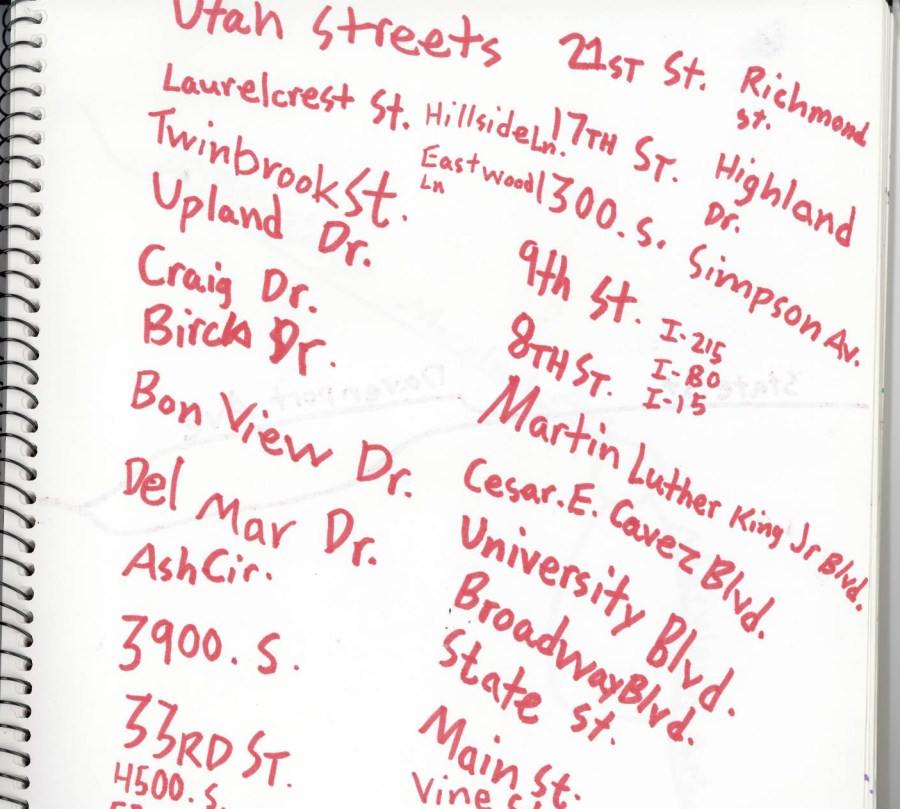 Utah Streets
Laurelcrest St.
Twinbrook St.
Upland Dr.
Craig Dr.
Birch Dr.
Bon View Dr.
Del Mar Dr.
Ash Cir.
3900. S.
33RD ST.
H500. S.
Hillside Ln.
Eastwood
Ln
21ST St.
17TH ST.
1300. S.
9th St.
8TH ST.
Martin Luther King Jr Blvd.
Cesar. E. Cavez Blvd.
University Blvd.
Broadway Blvd.
State St.
Main St.
Vine St
Richmond
St.
Highland
Dr.
Simpson Av.
I-215
I-80
I-15
Davenport
State